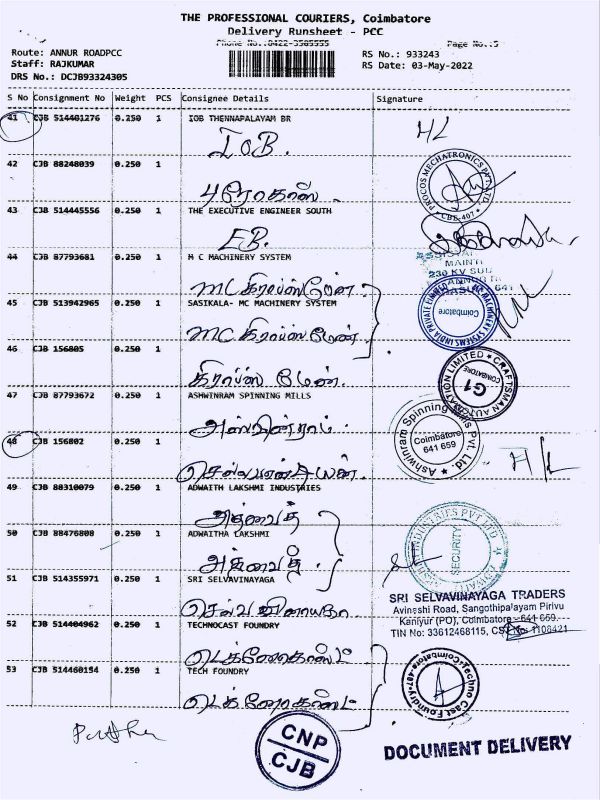 THE PROFESSIONAL COURIERS, Coimbatore
Delivery Runsheet - PCC
Phone No.:0422-3505555
Page No.:5
Route: ANNUR ROADPCC
Staff: RAJKUMAR
DRS No.: DCJB93324305
RS No.: 933243
RS Date: 03-May-2022
S No Consignment No Weight PCS Consignee Details Signature
41 CJB 514401276 0.250 1 IOB THENNAPALAYAM BR
I O B.
42 CJB 88248039 0.250 1
PROCOS MECHATRONICS PVT. LTD.
CBE-407
43 CJB 514445556 0.250 1 THE EXECUTIVE ENGINEER SOUTH
EB.
44 CJB 87793681 0.250 1 M C MACHINERY SYSTEM
230 KV SUB
MC கிராப்ஸ் மேன்.
45 CJB 513942965 0.250 1 SASIKALA- MC MACHINERY SYSTEM
MC MACHINERY SYSTEMS INDIA PRIVATE LIMITED
Coimbatore
MC கிராப்ஸ் மேன்.
46 CJB 156805 0.250 1
கிராப்ஸ் மேன்.
CRAFTSMAN AUTOMATION LIMITED
COIMBATORE
G1
47 CJB 87793672 0.250 1 ASHWINRAM SPINNING MILLS
அஸ்வின்ராம்.
Ashwinram Spinning Mills Pvt. Ltd.
Coimbatore
641 659
48 CJB 156802 0.250 1
49 CJB 88310079 0.250 1 ADWAITH LAKSHMI INDUSTRIES
அத்வைத்
50 CJB 88476808 0.250 1 ADWAITHA LAKSHMI
அத்வைத்
INDUSTRIES PVT LTD
SECURITY
51 CJB 514355971 0.250 1 SRI SELVAVINAYAGA
செல்வ விநாயகா
SRI SELVAVINAYAGA TRADERS
Avineshi Road, Sangothipalayam Pirivu
Kaniyur (PO), Coimbatore - 641 659.
TIN No: 33612468115, CST No: 1108421
52 CJB 514404962 0.250 1 TECHNOCAST FOUNDRY
டெக்னோகாஸ்ட்
53 CJB 514460154 0.250 1 TECH FOUNDRY
டெக்னோகாஸ்ட்
Techno Cast Foundry
Coimbatore-407
CNP
CJB
DOCUMENT DELIVERY